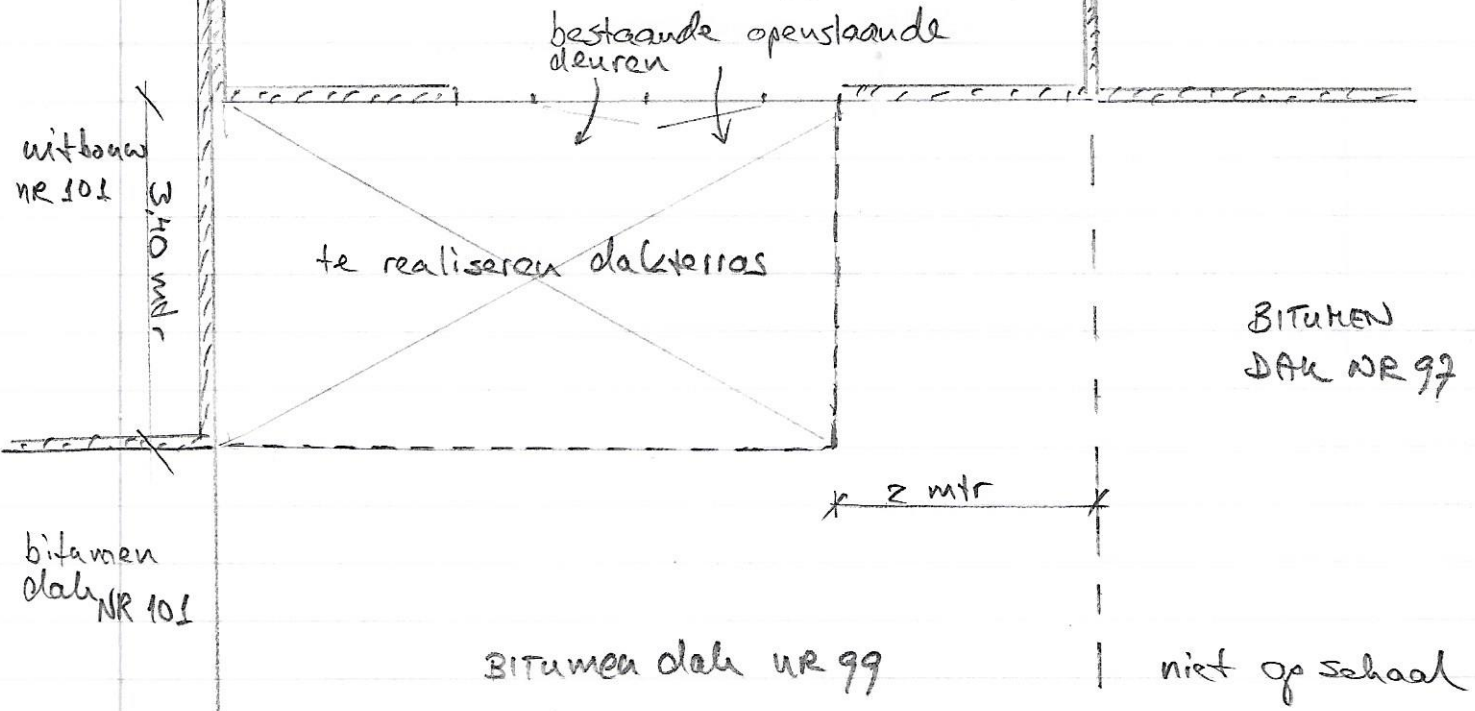 bestaande openslaande
deuren
uitbouw
NR 101
3,40 mtr
te realiseren dakterras
BITUMEN
DAK NR 97
2 mtr
bitumen
dak NR 101
BITUMEN dak NR 99
niet op schaal